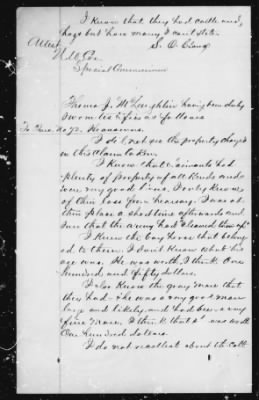 I know that they had cattle and
hogs but how many I cant state.
S. D.
Attest
Special Commissioner
Thomas J. McLaughlin having been duly
sworn testifies as follows
To Int. No 72. He answers.
I do not see the property charged
in this Claim taken.
I know that claimants had
plenty of property of all kinds and
were very good livers. I only know
of their loss from hearsay. I was at
their place a short time afterwards and
saw that the army had cleaned them up.
I knew the bay horse that belong-
ed to them. I dont know what his
age was. He was worth I think One
hundred and fifty dollars.
I also knew the gray mare that
they had - She was a very good mare
large and likely and had been a very
fine mare. I think that she was worth
One hundred dollars.
I do not recollect about the colt